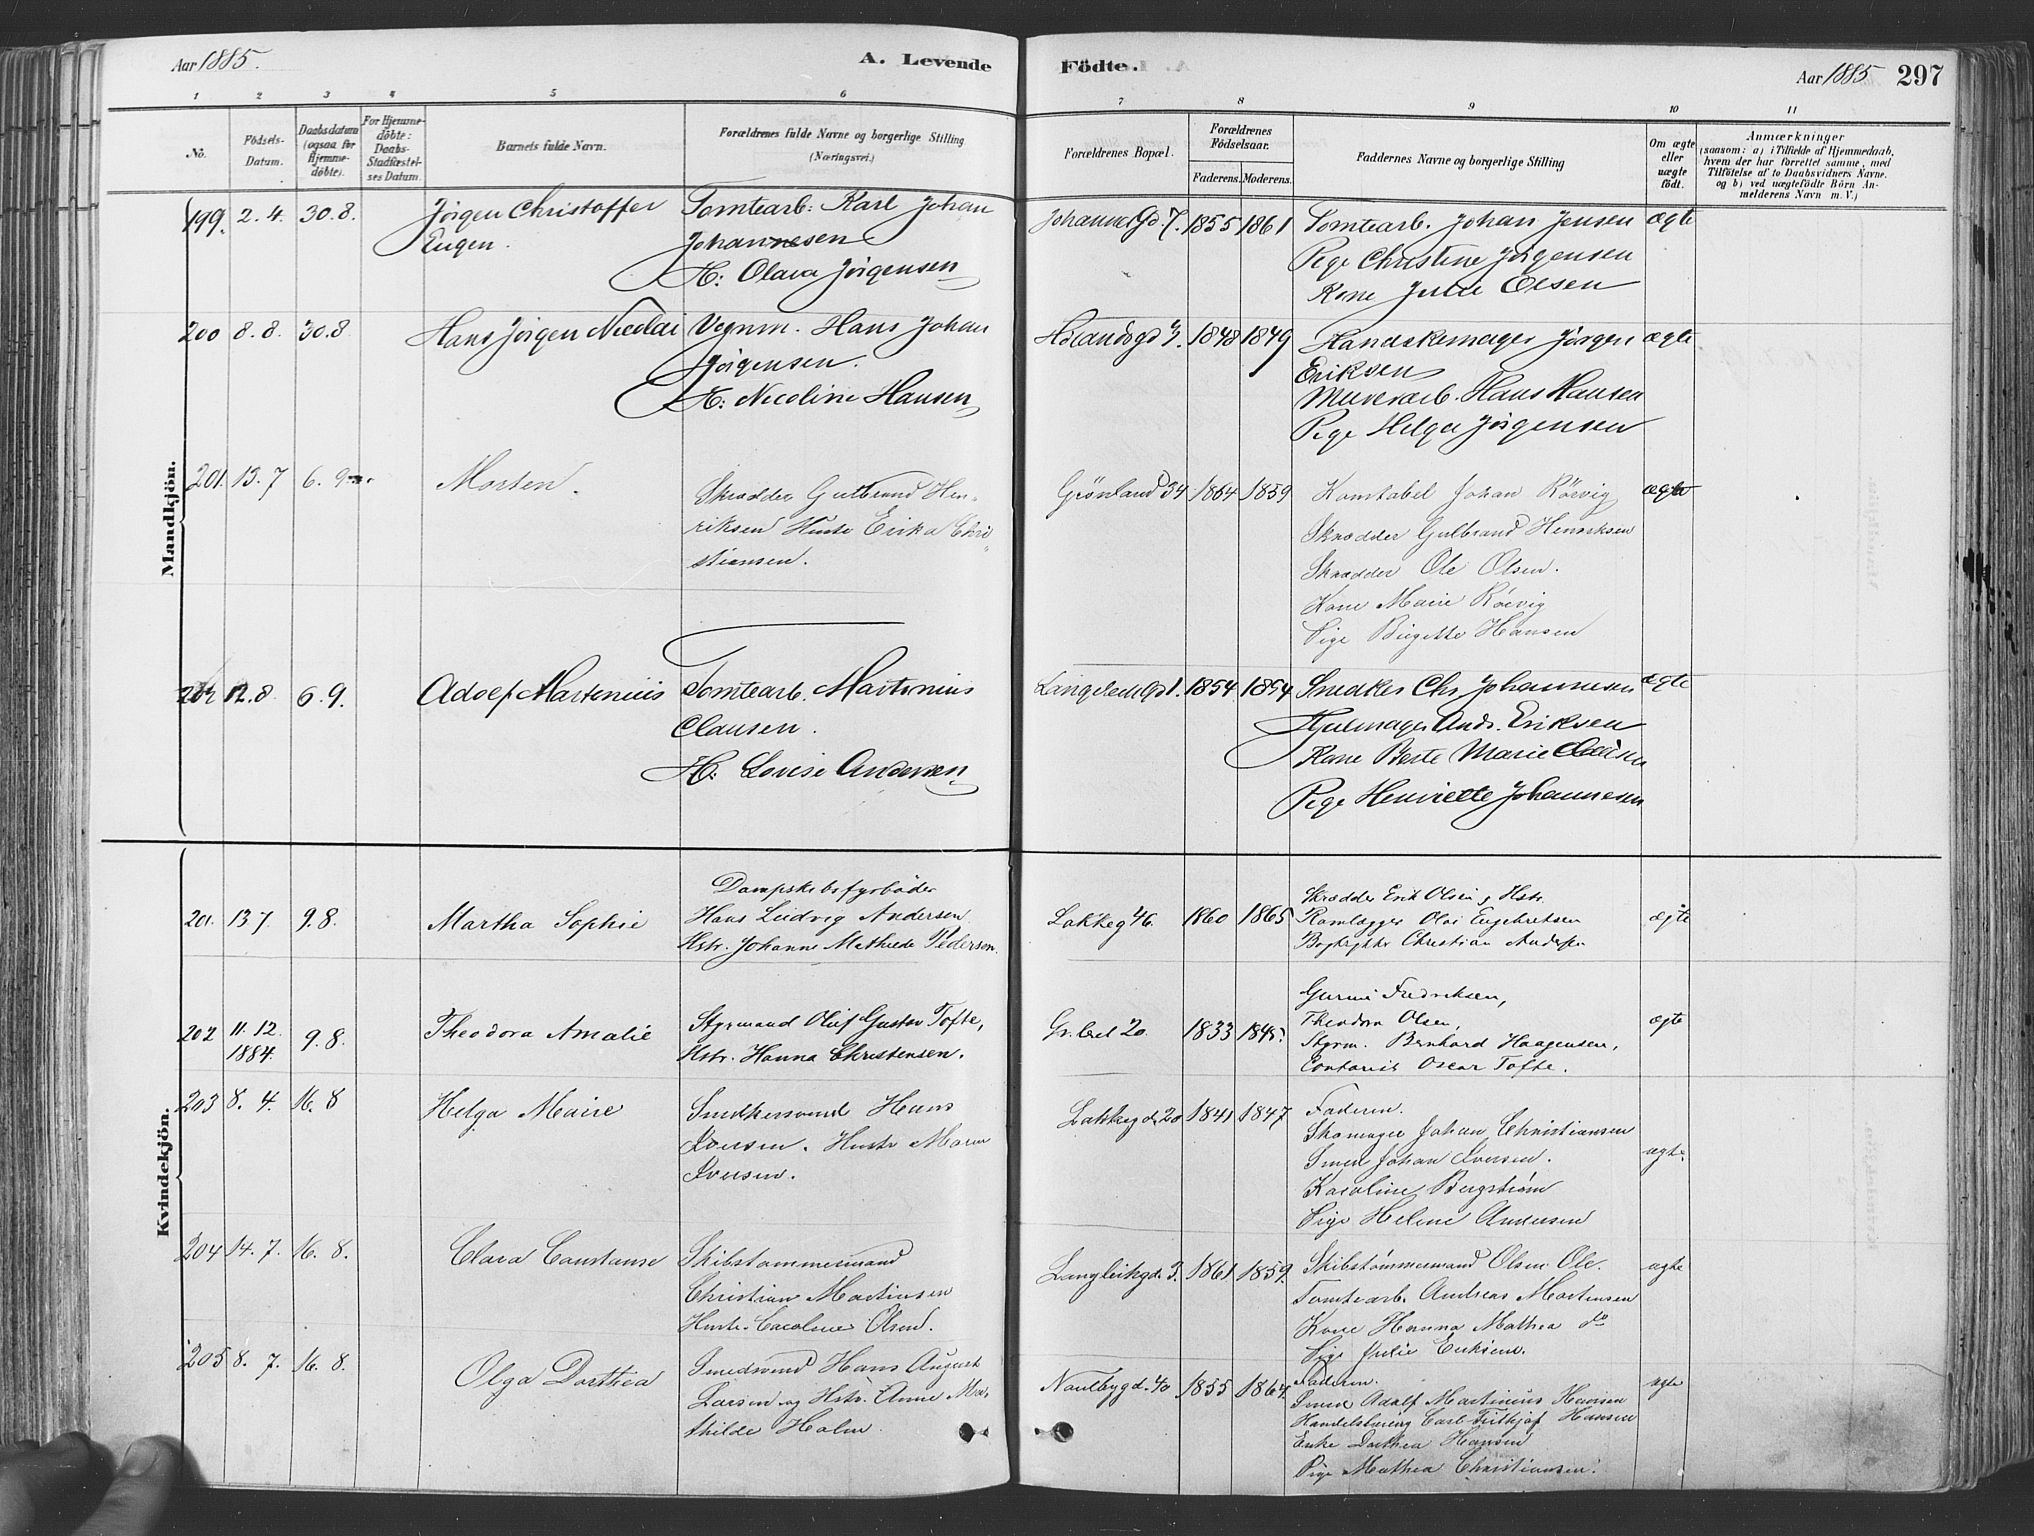 Aar 1885.
A. Levende Födte.
Aar 1885 297
1 2 3 4 5 6 7 8 9 10 11
No.
Födsels-Datum.
Daabsdatum (ogsaa for Hjemme-döbte).
For Hjemme-döbte: Daabs-Stadfæstel-ses Datum.
Barnets fulde Navn.
Forældrenes fulde Navne og borgerlige Stilling (Næringsvei.)
Forældrenes Bopæl.
Forældrenes Födselsaar.
Faderens. Moderens.
Faddernes Navne og borgerlige Stilling
Om ægte eller uægte födt.
Anmærkninger
(saasom: a) i Tilfælde af Hjemmedaab, hvem der har forrettet samme, med Tilföielse af to Daabsvidners Navne. og b) ved uægtefödte Börn An-melderens Navn m. V.)
Mandkjön.
199. 2.4. 30.8. Jörgen Christoffer Eugen.
Tomtearb: Karl Johan
Johannesen
H: Olava Jörgensen
Johannes Gd 7. 1855 1861
Tomtearb. Johan Jensen
Pige Christine Jörgensen
Kone Julie Olsen
ægte
200 8.8. 30.8 Hans Jörgen Nicolai
Vognm. Hans Johan
Jörgensen.
H: Nicoline Hansen
Hölandsgd 3. 1848 1849
Handskemager Jörgen
Eriksen
Murerarb. Hans Hansen
Pige Helga Jörgensen
ægte
201. 13.7 6.9 Morten.
Skrædder Gulbrand Hen-
riksen Hustr Erika Chri-
stiansen.
Grönland 34 1864 1859
Konstabel Johan Rörvig
Skrædder Gulbrand Henriksen
Skrædder Ole Olsen.
Kone Marie Rörvig
Pige Birgitte Hansen
ægte
202 12.8 6.9. Adolf Martinius
Tomtearb. Martinius
Clausen.
H: Lovise Andersen
Langeleik Gd 1. 1854 1854
Snedker Chr Johannesen
Hjulmager Andr. Eriksen
Kone Berte Marie
Pige Henriette Johannesen
ægte
Kvindekjön.
201. 13 7 9.8. Martha Sophie
Dampskibsfyrböder
Hans Ludvig Andersen
Hstr. Johanne Mathilde Pedersen.
Lakkeg 46. 1860 1865
Skrædder Erik Olsen, Hstr.
Olai Engebretsen
Bogtrykker Christian Andersen
ægte
202 11.12. 1884. 9.8. Theodora Amalie
Styrmand Oluf Gustav Tofte,
Hstr. Hanna Christensen.
20 1833 1845
Gurine Fredriksen,
Theodora Olsen,
Styrm. Bernhard Haagensen,
Contorist Oscar Tofte.
ægte
203 8.4. 16.8 Helga Marie
Snedkersvend Hans
Iversen. Hustr Maren
Iversen.
Lakkegd. 20 1841 1847
Faderen.
Skomager Johan Christiansen
Smed Johan Iversen.
Karoline Bergström
Pige Helene Andersen
ægte.
204 14.7. 16.8. Clara Constanse
Skibstömmermand
Christian Martinsen
Hustr. Caroline Olsen.
Langleikgd. 3. 1861 1859.
Skibstömmermand Olsen Ole.
Tomtearb. Andreas Martinsen
Kone Hanna Mathea do
Pige Julie Eriksen.
ægte
205 8.7. 16.8. Olga Dorthea
Smedsvend Hans August
Larsen og Hstr. Anne Ma-
thilde Holm.
Nordbygd. 40 1855 1864.
Faderen.
Smed Adolf Martinius Hansen
Handelsbetjng Carl Fritkjof Hansen
Enke Dorthea Hansen
Pige Mathea Christiansen.
ægte